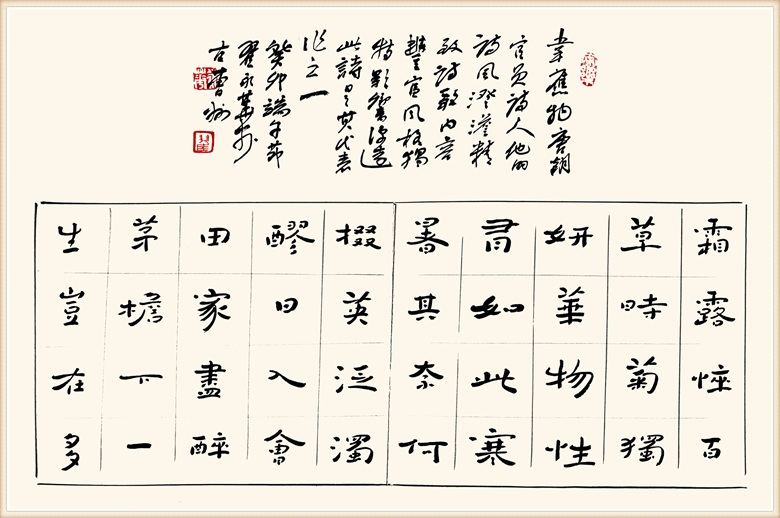 韋應物唐朝
官員詩人他的
詩風澄澹精
致詩歌内容
豐富風格獨
特影響深遠
此詩是其代表
作之一
癸卯端午節
翟永華於
古曹州
霜露悴百
草時菊獨
妍華物性
有如此寒
暑其奈何
掇英泛濁
醪日入會
田家盡醉
茅檐下一
生豈在多